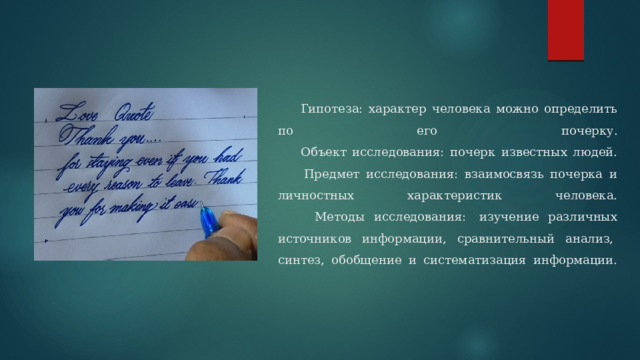 Love Quote
Thank you....
for staying even if you had
every reason to leave. Thank
you for making it easy
Гипотеза: характер человека можно определить
по его почерку.
Объект исследования: почерк известных людей.
Предмет исследования: взаимосвязь почерка и
личностных характеристик человека.
Методы исследования: изучение различных
источников информации, сравнительный анализ,
синтез, обобщение и систематизация информации.